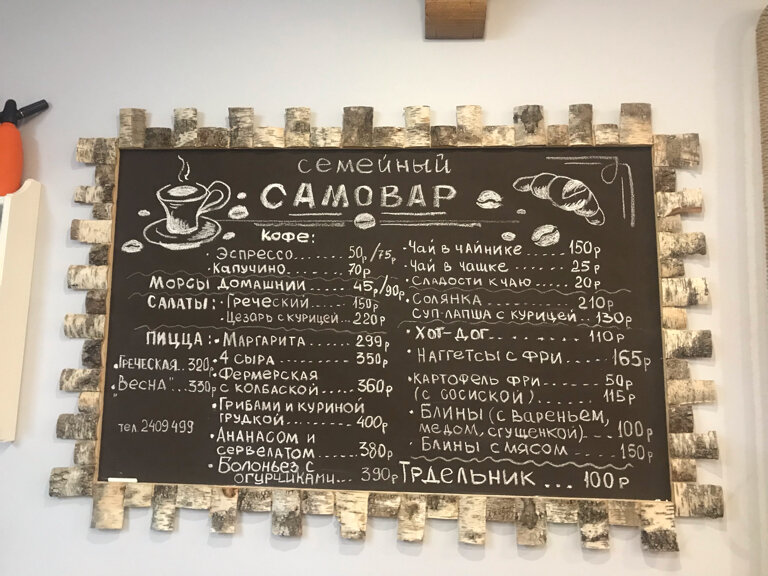 СЕМЕЙНЫЙ
САМОВАР
Кофе:
· Эспрессо....... 50р/75р
· Капучино......... 70р
Морсы домашний ..... 45р/90р
Салаты: · Греческий ...... 150р
· Цезарь с курицей.. 220р
Пицца: · Маргарита ....... 299р
· 4 сыра .............. 350р
· Фермерская
с колбаской ..... 360р
· Грибами и куриной
грудкой .............. 400р
· Ананасом и
сервелатом .... 380р
· Болоньез с
огурчиками... 390р
· Греческая.. 320р
· "Весна"... 330р
тел. 2409499
· Чай в чайнике ...... 150р
· Чай в чашке ....... 25р
· Сладости к чаю .... 20р
· Солянка ........... 210р
Суп-лапша с курицей.. 130р
· Хот-дог.......... 110р
· Наггетсы с фри...... 165р
· Картофель фри ..... 50р
(с сосиской)....... 115р
· Блины (с вареньем,
медом, сгущенкой)... 100р
· Блины с мясом ...... 150р
Трдельник ... 100р